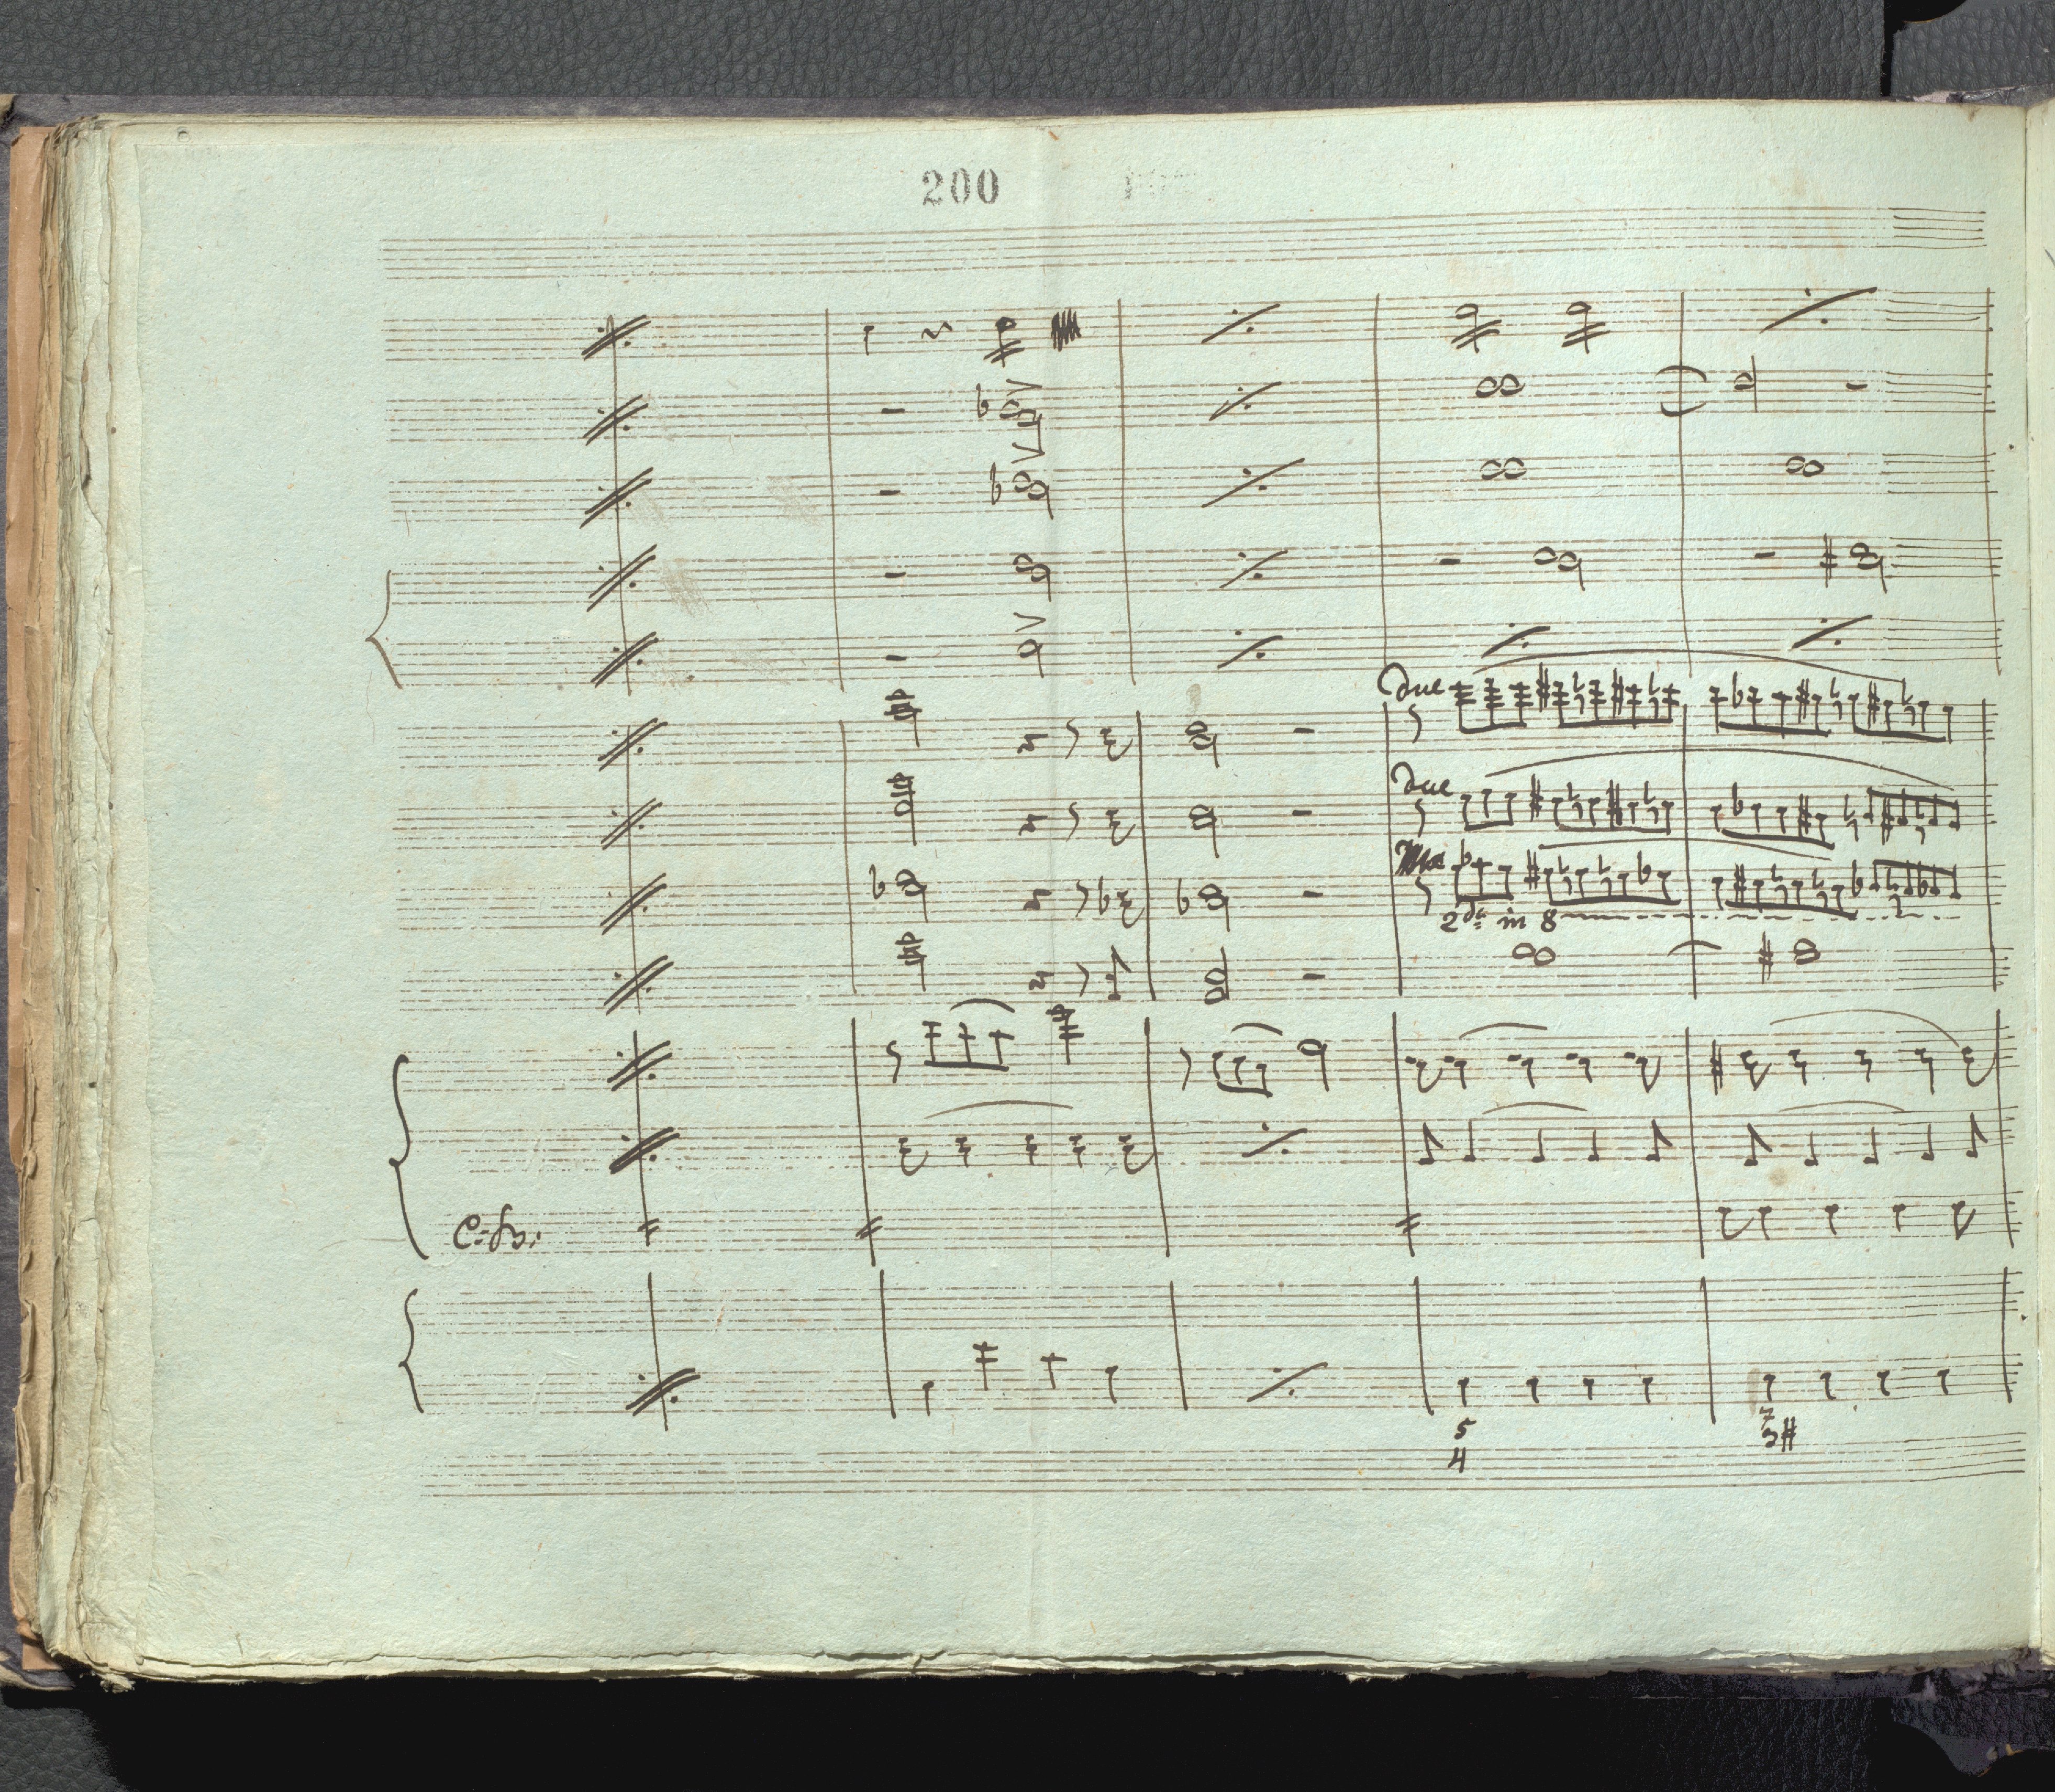 200
due
due
2da in 8
C: B:
5
4
7
3#